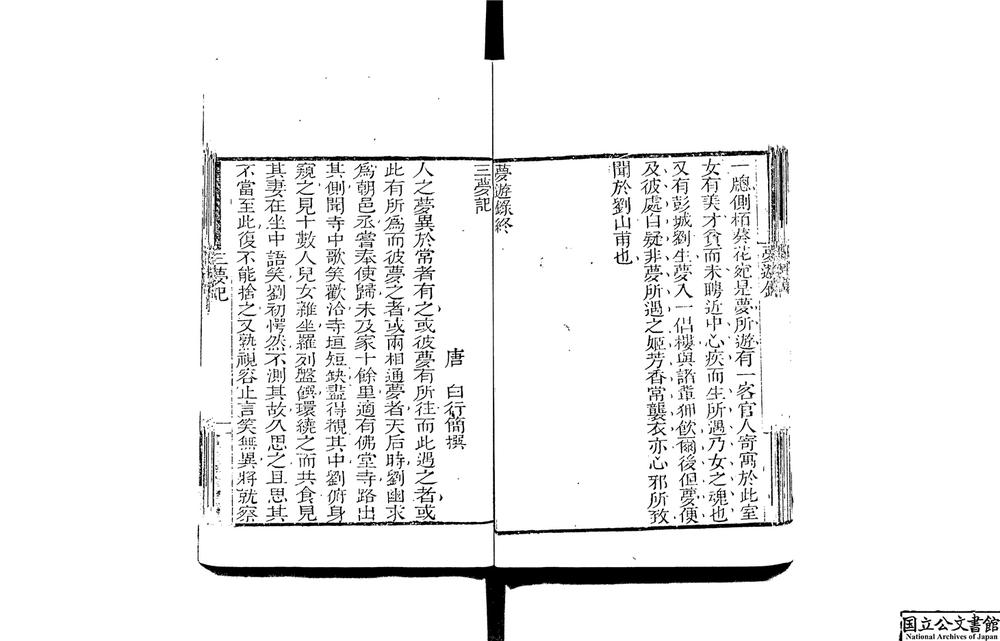 夢遊錄
一牕側栢葵花宛是夢所遊有一客官人寄寓於此室
女有美才貧而未聘近中心疾而生所遇乃女之魂也
又有彭城劉生夢入一倡樓與諸輩狎飲爾後但夢便
及彼處自疑非夢所遇之姬芳香常襲衣亦心邪所致
聞於劉山甫也
夢遊錄終
三夢記
唐　白行簡撰
人之夢異於常者有之或彼夢有所往而此遇之者或
此有所爲而彼夢之者或兩相通夢者天后時劉幽求
爲朝邑丞嘗奉使歸未及家十餘里適有佛堂寺路出
其側聞寺中歌笑歡洽寺垣短缺盡得覩其中劉俯身
窺之見十數人兒女雜坐羅列盤饌環繞之而共食見
其妻在坐中語笑劉初愕然不測其故久思之且思其
不當至此復不能捨之又熟視容止言笑無異將就察
三夢記
国立公文書館
National Archives of Japan